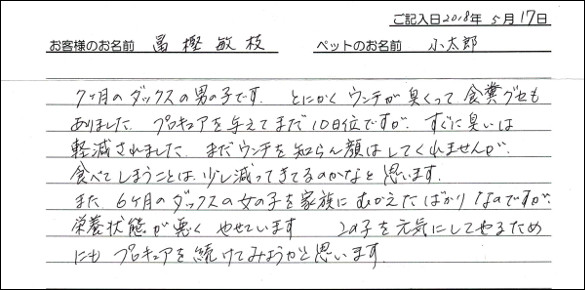 ご記入日2018年5月17日
お客様のお名前 冨樫敏枝 ペットのお名前 小太郎
7ヶ月のダックスの男の子です。とにかくウンチが臭くって食糞グセも
ありました。プロキュアを与えてまだ10日位ですが、すぐに臭いは
軽減されました。まだウンチを知らん顔はしてくれませんが、
食べてしまうことは、少し減ってきてるのかなと思います。
また、6ヶ月のダックスの女の子を家族にむかえたばかりなのですが、
栄養状態が悪くやせています 2つの子を元気にしてやるため
にもプロキュアを続けてみようかと思います。